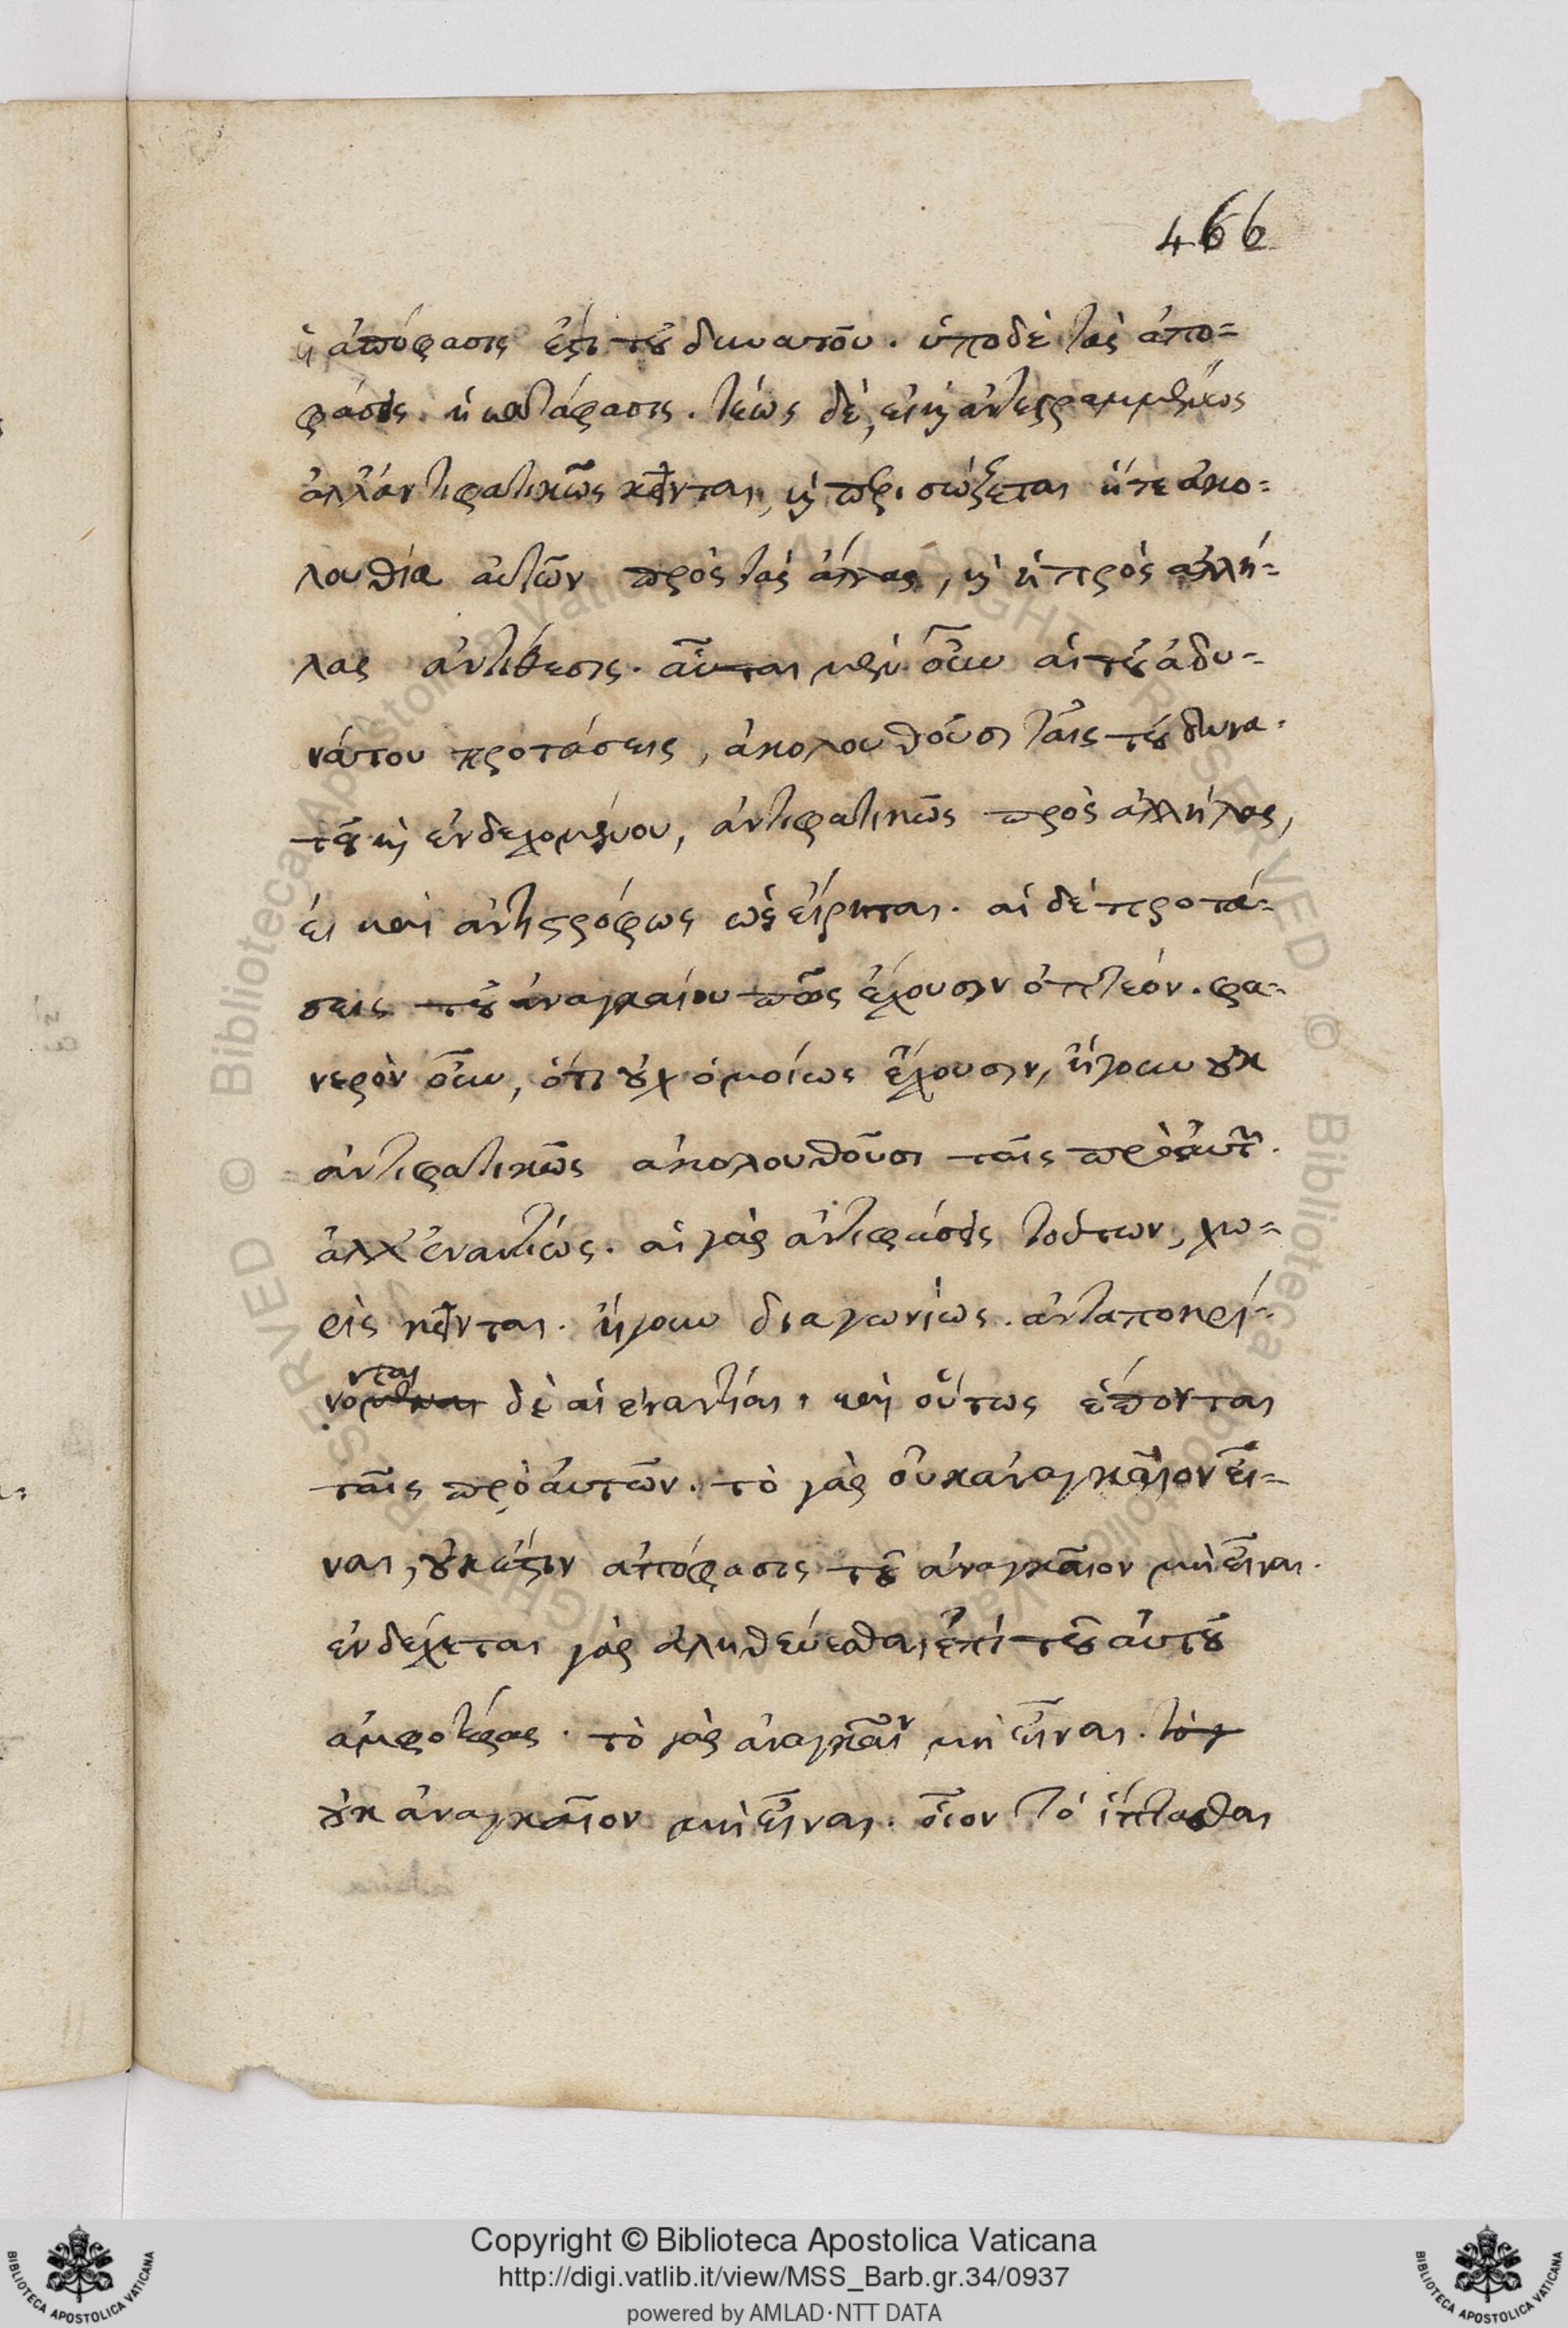 466
ἡ ἀπόφασις ἐστὶ τοῦ δυνατοῦ. ὑπὸ δὲ τὰς ἀπο=
φάσεις ἡ κατάφασις. τέως δὲ, εἰ καὶ ἀντεστραμμένως
ἀλλ' ἀντιφατικῶς κεῖνται, καὶ σώζεται ἥτε ἀκο=
λουθία αὐτῶν πρὸς τὰς ἄλλας, καὶ ἡ πρὸς ἀλλή=
λας ἀντίθεσις. αὗται μὲν οὖν αἱ τοῦ ἀδυ=
νάτου προτάσεις, ἀκολουθοῦσι ταῖς τοῦ δυνα=
τοῦ καὶ ἐνδεχομένου, ἀντιφατικῶς πρὸς ἀλλήλας,
εἰ καὶ ἀντιστρόφως ὡς εἴρηται. αἱ δὲ προτά=
σεις τοῦ ἀναγκαίου πῶς ἔχουσιν ὀπτέον. φα=
νερὸν οὖν, ὅτι οὐχ ὁμοίως ἔχουσιν, ἤγουν οὐκ
ἀντιφατικῶς ἀκολουθοῦσι ταῖς πρὸ αὐτῶν.
ἀλλ' ἐναντίως. αἱ γὰρ ἀντιφάσεις τούτων, χω=
ρὶς κεῖνται. ἤγουν διαγωνίως. ἀνταποκρί=
νονται δὲ αἱ ἐναντίαι. καὶ οὕτως ἕπονται
ταῖς πρὸ αὐτῶν. τὸ γὰρ οὐκ ἀναγκαῖον εἶ=
ναι, οὐκ ἔστιν ἀπόφασις τοῦ ἀναγκαῖον μὴ εἶναι.
ἐνδέχεται γὰρ ἀληθεύεσθαι ἐπὶ τοῦ αὐτοῦ
ἀμφοτέρας. τὸ γὰρ ἀναγκαῖον μὴ εἶναι.
οὐκ ἀναγκαῖον μὴ εἶναι. οἷον τὸ ἵπτασθαι
Copyright © Biblioteca Apostolica Vaticana
http://digi.vatlib.it/view/MSS_Barb.gr.34/0937
powered by AMLAD·NTT DATA